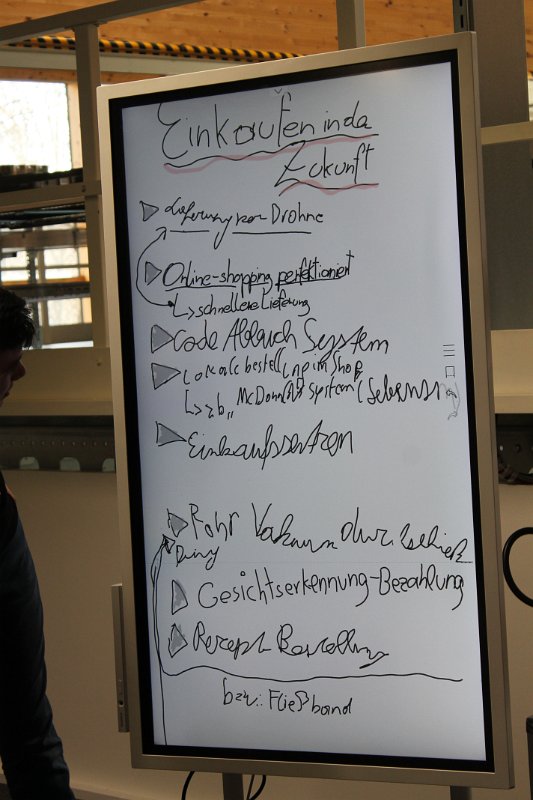 Einkaufen in da
Zukunft
Lieferung von Drohne
Online-shopping perfektioniert
↳ schnellere Lieferung
Code Abbuch System
Lokale bestellung im Shop
↳ z b „ McDonalds System (
Einkaufszentren
Rohr Vakuum
Gesichtserkennung-Bezahlung
Rezept Bestellung
bzw.: Fließband